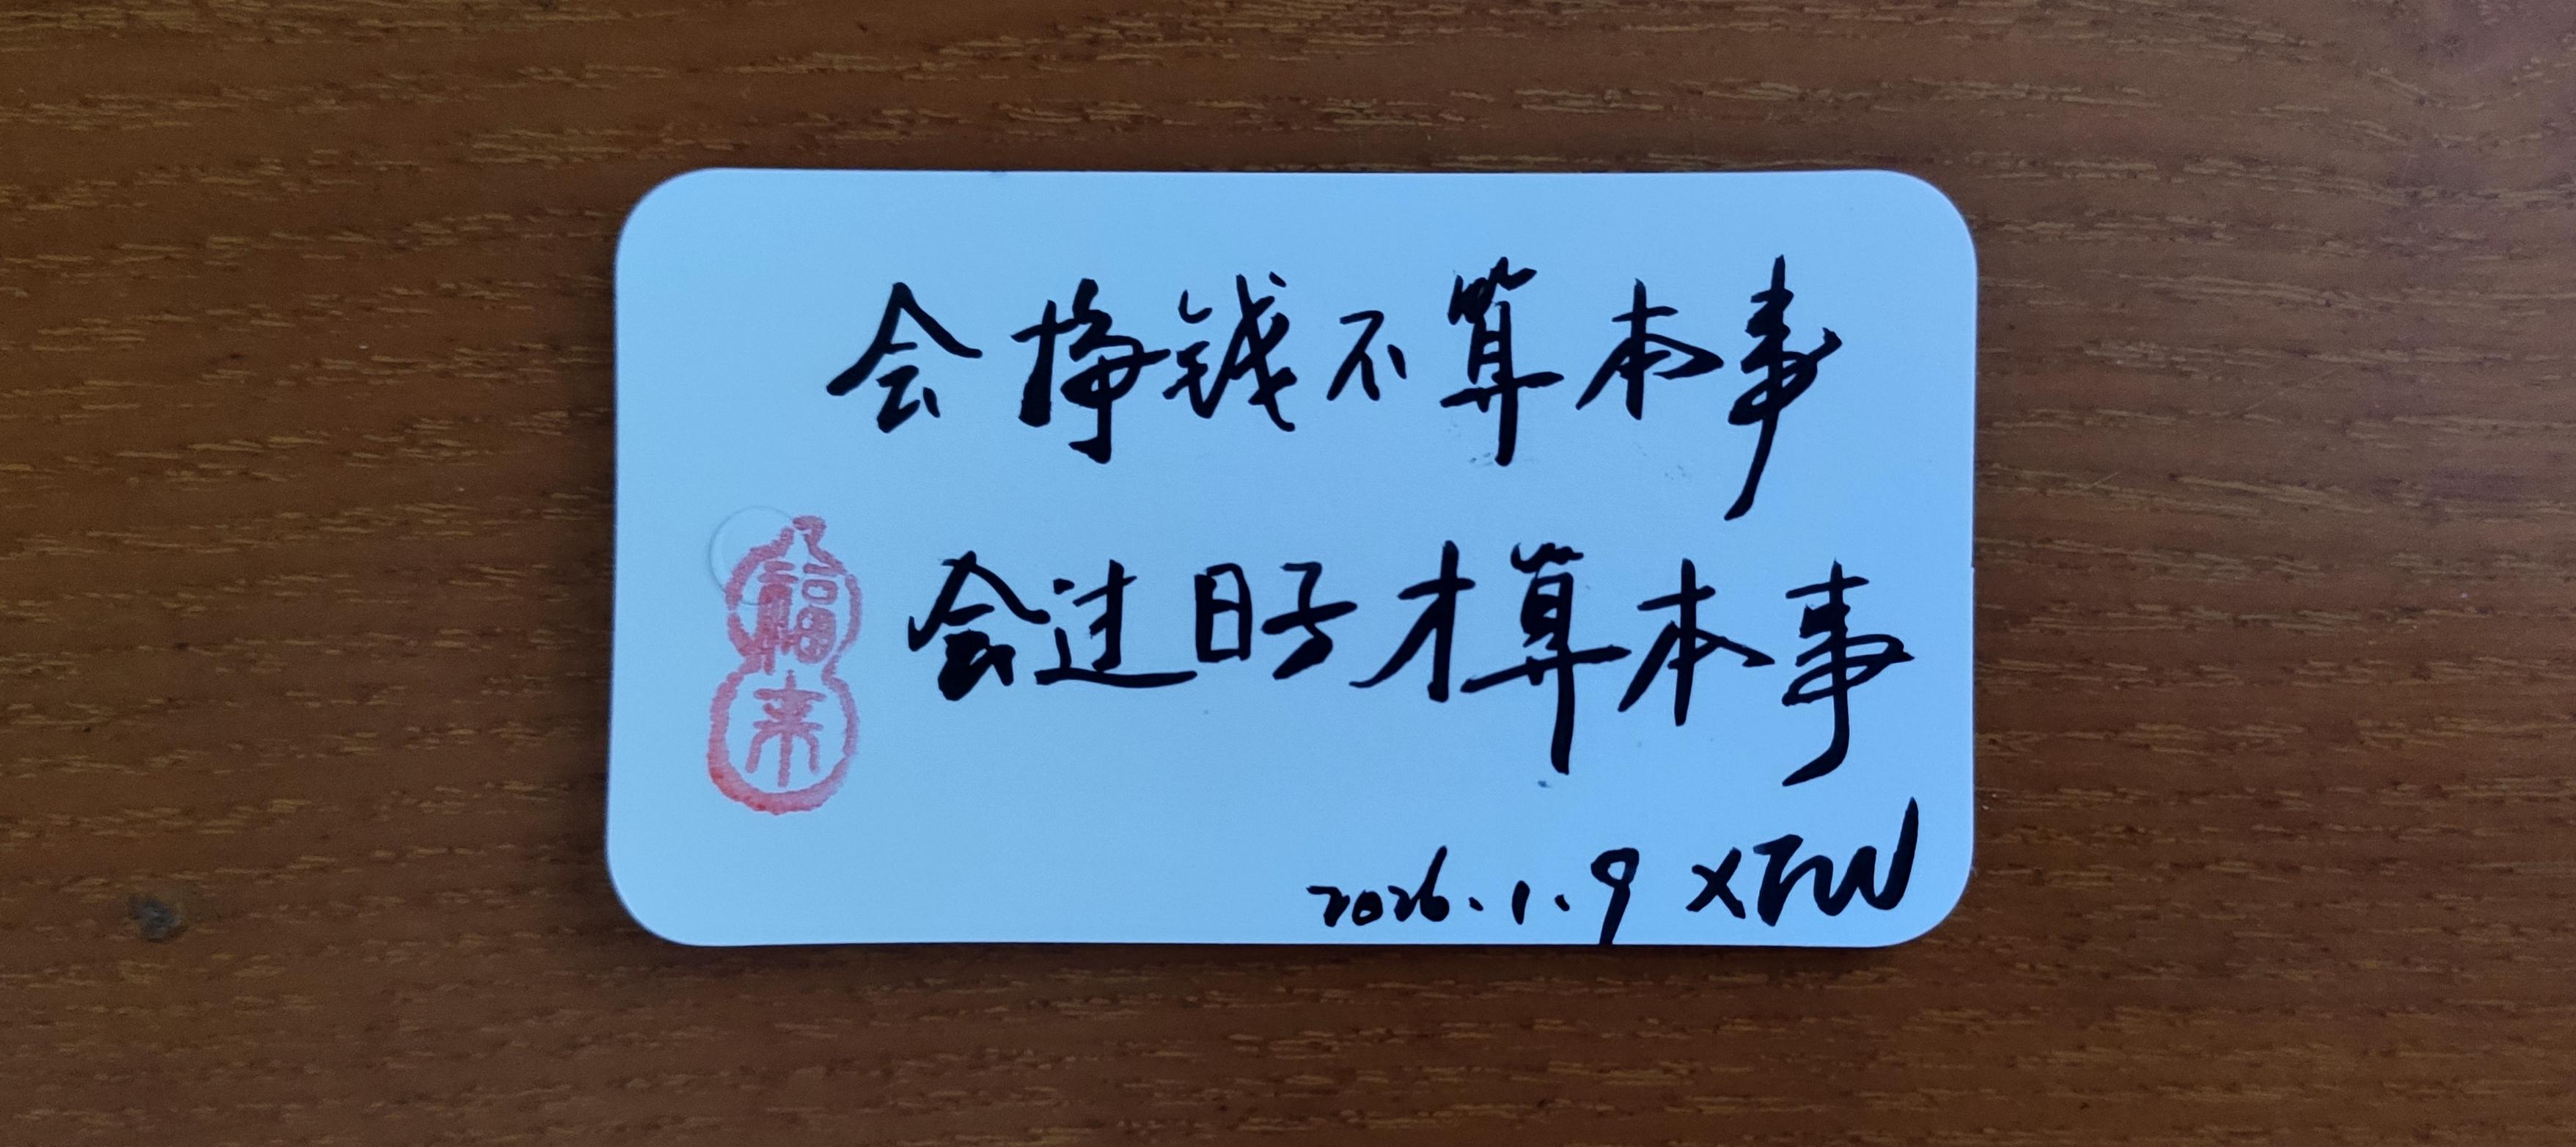 会挣钱不算本事
会过日子才算本事
福来
2026.1.9